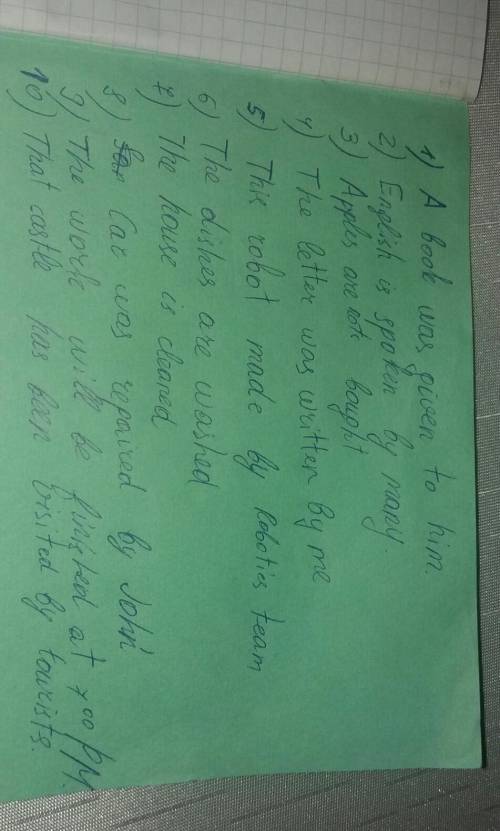 1) A book was given to him.
2) English is spoken by many.
3) Apples are not bought
4) The letter was written by me
5) This robot made by Robotics team
6) The dishes are washed
7) The house is cleaned
8) Car was repaired by John
9) The work will be finished at 7⁰⁰ PM.
10) That castle has been visited by tourists.